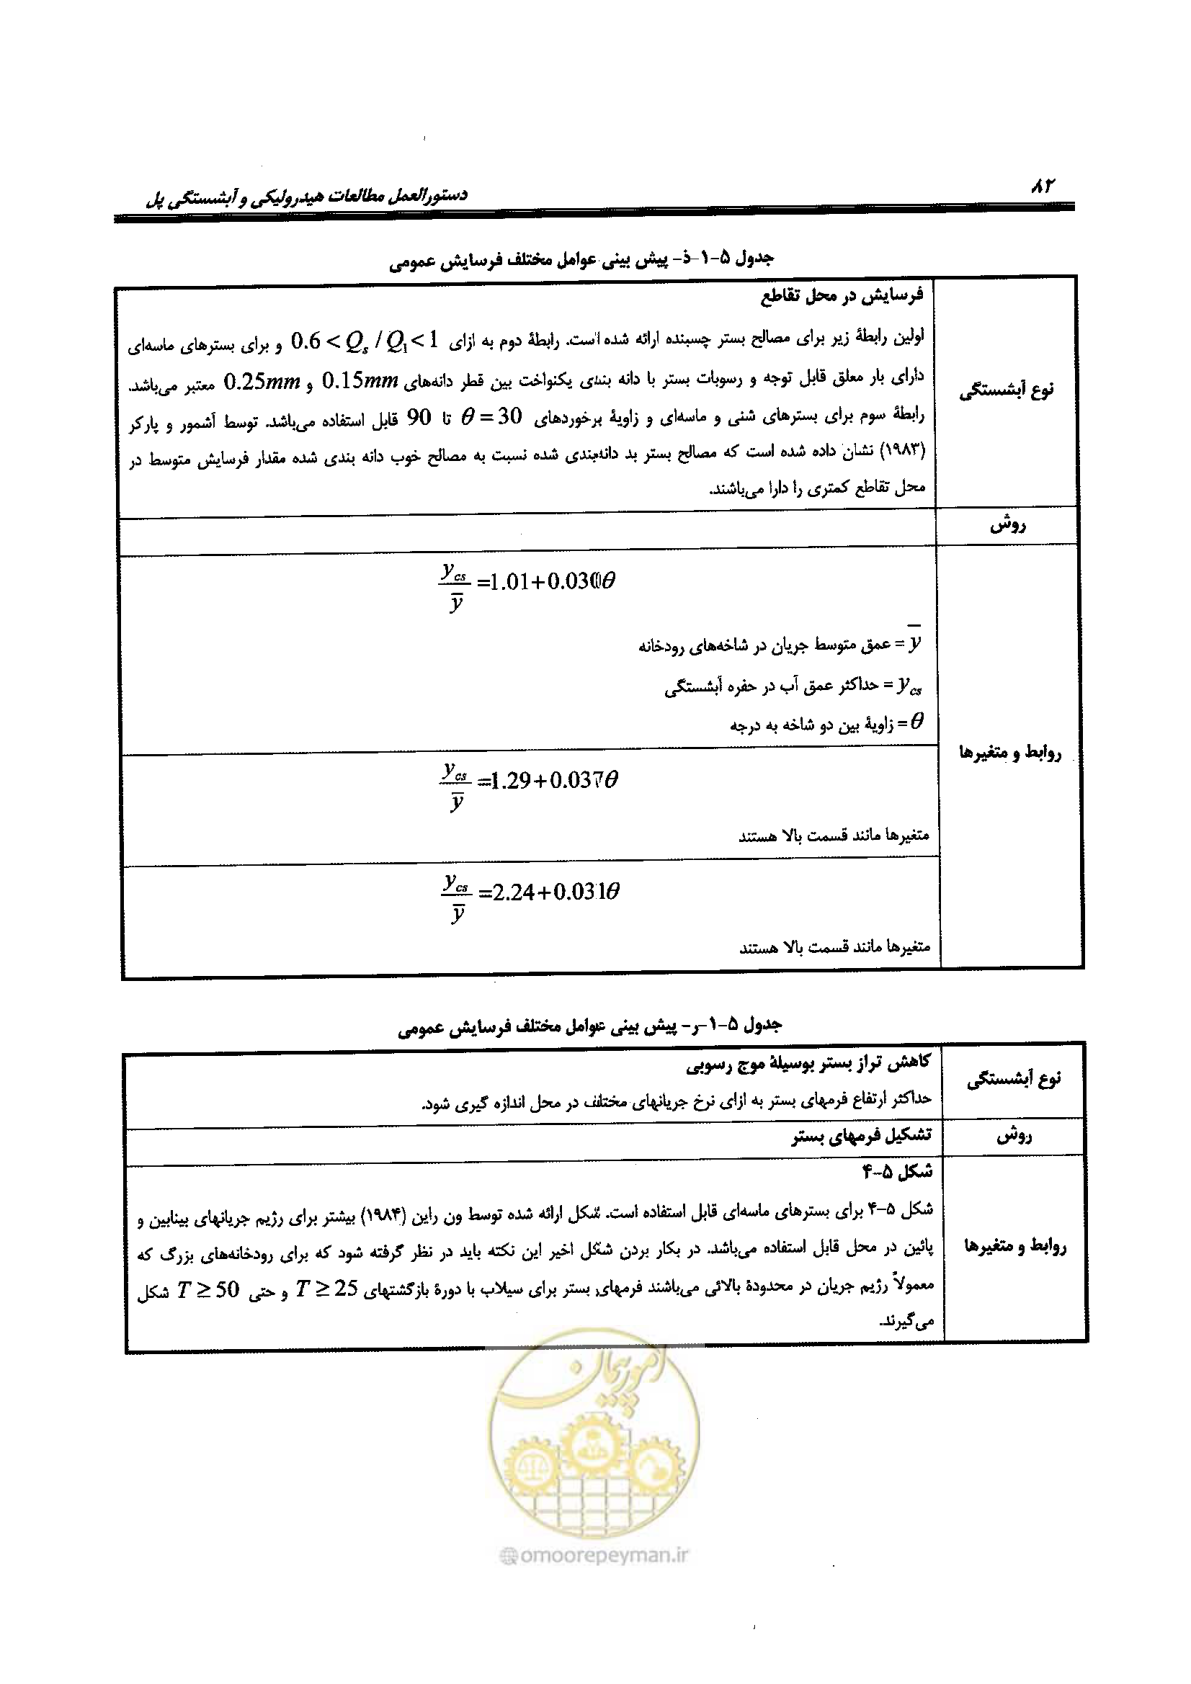 ۸۲
دستورالعمل مطالعات هیدرولیکی و آبشستگی پل
جدول ۵-۱-ذ- پیش بینی عوامل مختلف فرسایش عمومی
نوع آبشستگی
فرسایش در محل تقاطع
اولین رابطهٔ زیر برای مصالح بستر چسبنده ارائه شده است. رابطهٔ دوم به ازای 0.6 < Qs / Q1 < 1 و برای بسترهای ماسه‌ای
دارای بار معلق قابل توجه و رسوبات بستر با دانه بندی یکنواخت بین قطر دانه‌های 0.15mm و 0.25mm معتبر می‌باشد.
رابطهٔ سوم برای بسترهای شنی و ماسه‌ای و زاویهٔ برخوردهای θ = 30 تا 90 قابل استفاده می‌باشد. توسط آشمور و پارکر
(۱۹۸۳) نشان داده شده است که مصالح بستر بد دانه‌بندی شده نسبت به مصالح خوب دانه بندی شده مقدار فرسایش متوسط در
محل تقاطع کمتری را دارا می‌باشند.
روش
روابط و متغیرها
y_cs / ȳ = 1.01 + 0.030θ
ȳ = عمق متوسط جریان در شاخه‌های رودخانه
y_cs = حداکثر عمق آب در حفره آبشستگی
θ = زاویهٔ بین دو شاخه به درجه
y_cs / ȳ = 1.29 + 0.037θ
متغیرها مانند قسمت بالا هستند
y_cs / ȳ = 2.24 + 0.031θ
متغیرها مانند قسمت بالا هستند
جدول ۵-۱-ر- پیش بینی عوامل مختلف فرسایش عمومی
نوع آبشستگی
کاهش تراز بستر بوسیلهٔ موج رسوبی
حداکثر ارتفاع فرمهای بستر به ازای نرخ جریانهای مختلف در محل اندازه گیری شود.
روش
تشکیل فرمهای بستر
روابط و متغیرها
شکل ۵-۴
شکل ۵-۴ برای بسترهای ماسه‌ای قابل استفاده است. شکل ارائه شده توسط ون راین (۱۹۸۴) بیشتر برای رژیم جریانهای بینابین و
پائین در محل قابل استفاده می‌باشد. در بکار بردن شکل اخیر این نکته باید در نظر گرفته شود که برای رودخانه‌های بزرگ که
معمولاً رژیم جریان در محدودهٔ بالائی می‌باشند فرمهای بستر برای سیلاب با دورهٔ بازگشتهای T ≥ 25 و حتی T ≥ 50 شکل
می‌گیرند.
امور پیمان
@omoorepeyman.ir